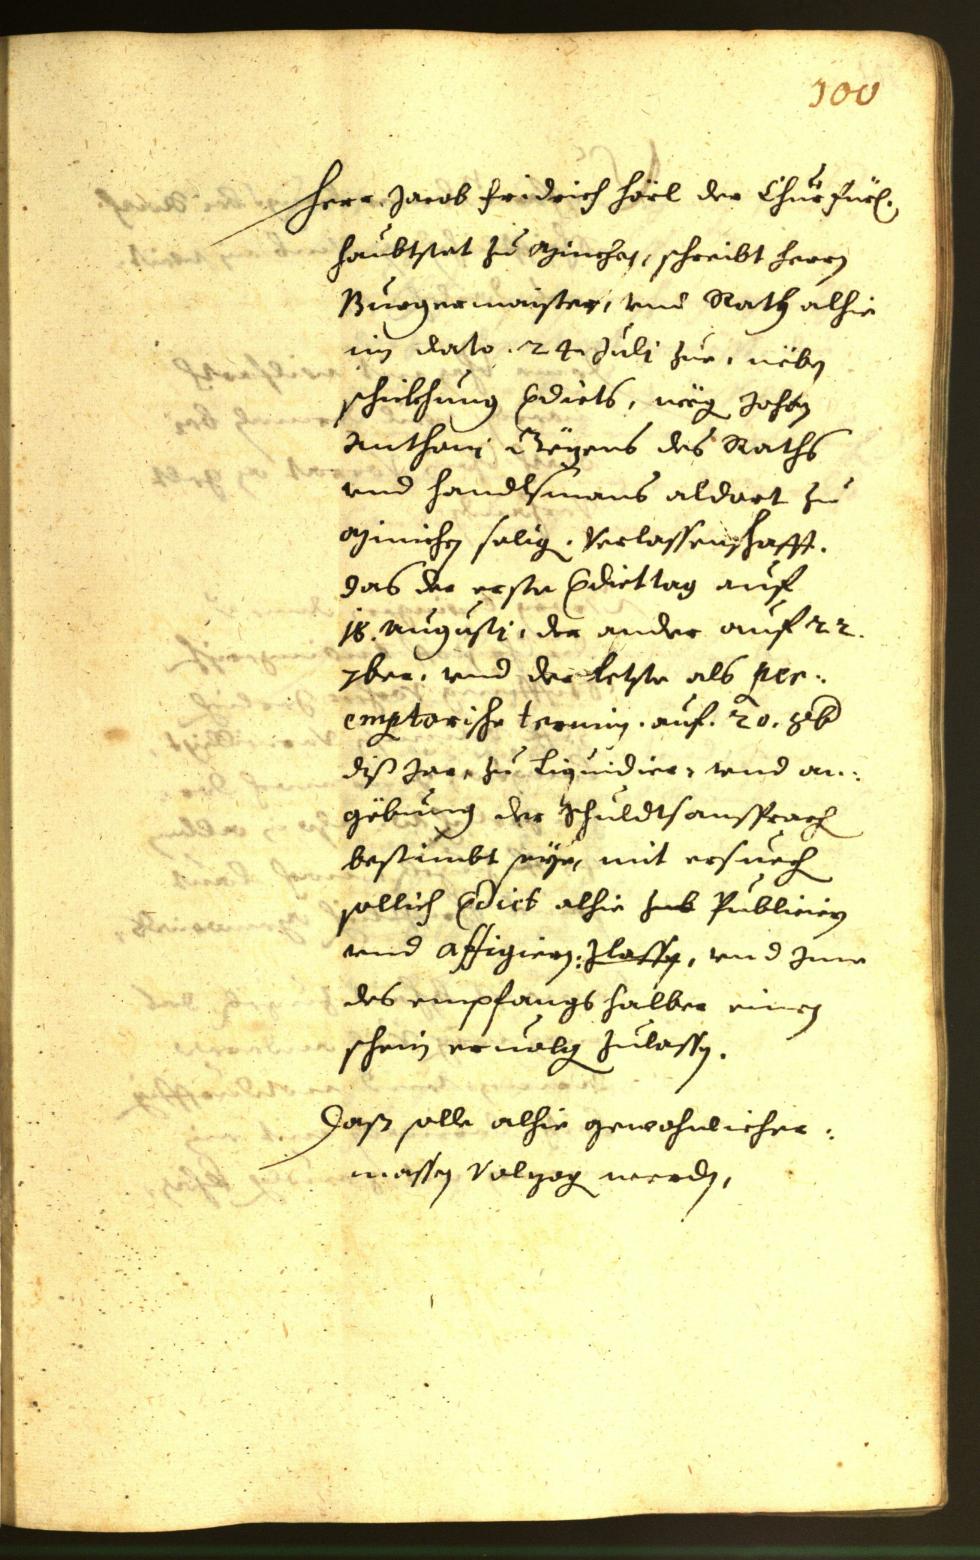 100
Herr Jacob Fridrich Hörl der Churfürl.
haubtstat zu Minchen, schreibt herrn
Burgermaister, vnd Rath alhie
im dato .24 Julj zue, nëben
schickhung Edicts, wëg Johan
Anthonj des Raths
vnd handlsmans aldort zu
Minichen selig. Verlassenschafft.
das der erste Edicttag auf
18. Augustj, der ander auf 22.
7ber, vnd der letste als per:
emptorische termin. auf. 20. 8b
diß Jar, zu Liquidiern vnd an:
gëbung der schuldtsansprach
bestimbt seye, mit ersuech
sollich Edict alhie Publiciern
vnd affigiern: Zlassen, vnd Ime
des empfangs halber einen
schein ervolg Zulassen.
Dass solle alhie gewohnlicher:
massen Volzog werden,